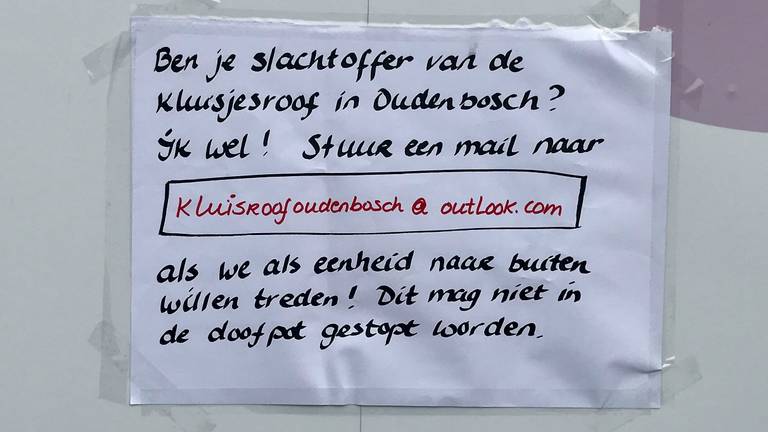 Ben je slachtoffer van de
Kluisjesroof in Oudenbosch?
Ik wel! Stuur een mail naar
Kluisroofoudenbosch@outlook.com
als we als eenheid naar buiten
willen treden! Dit mag niet in
de doofpot gestopt worden.